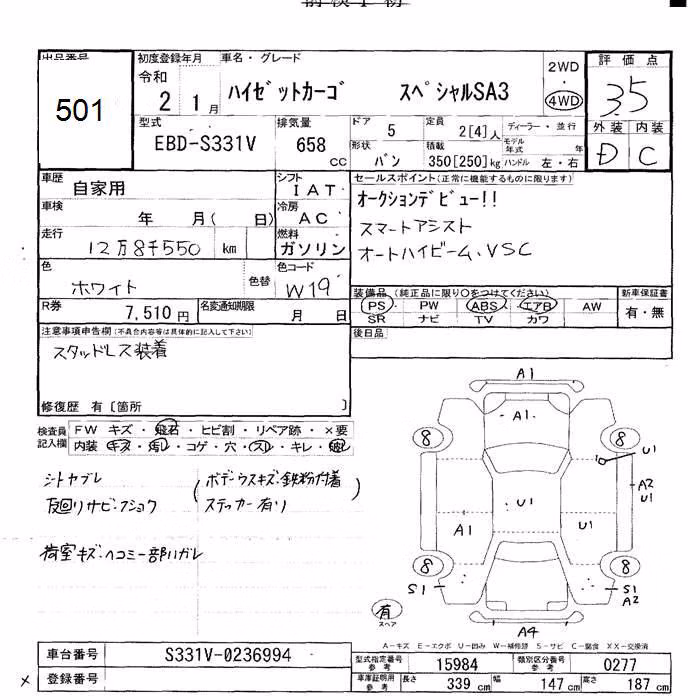 出品番号
501
初度登録年月
令和
2 1月
車名・グレード
ハイゼットカーゴ スペシャルSA3
2WD
・
4WD
評価点
3.5
外装 内装
D C
型式
EBD-S331V
排気量
658
cc
ドア
5
定員
2[4]人
ディーラー・並行
モデル年式 年
形状
バン
積載
350[250]kg
ハンドル 左・右
車歴
自家用
シフト
IAT
セールスポイント(正常に機能するものに限ります)
オークションデビュー!!
スマートアシスト
オートハイビーム、VSC
車検
年 月( 日)
冷房
AC
走行
12万8千550 km
燃料
ガソリン
色
ホワイト
色替
色コード
W19
装備品(純正品に限り○をつけてください)
PS PW ABS エアB AW
SR ナビ TV カワ
新車保証書
有・無
R券
7,510円
名変通知期限
月 日
後日品
注意事項申告欄(不具合内容等は具体的に記入して下さい)
スタッドレス装着
修復歴 有〔箇所 〕
検査員記入欄
FW キズ・飛石・ヒビ割・リペア跡・×要
内装 キズ・汚レ・コゲ・穴・スレ・キレ・破レ
シトヤブレ
下回りサビ・フショク
(ボデーウスキズ・鉄粉付着
ステッカー有リ)
荷室キズ・ヘコミ一部ハガレ
A1
A1
8 8
U1
A2
U1
U1
A1
U1
8 8
S1
S1
A2
有
スペア
A4
A-キズ E-エクボ U-凹み W-補修跡 S-サビ C-腐食 XX-交換済
車台番号
S331V-0236994
型式指定番号
参考
15984
類別区分番号
参考
0277
× 登録番号
車庫証明用
参考
長さ 339 cm
幅 147 cm
高さ 187 cm